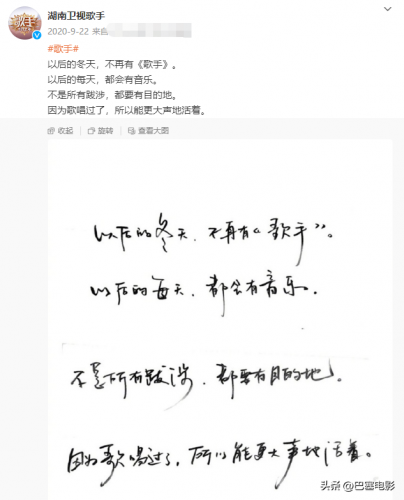 湖南卫视歌手
2020-9-22 来自
#歌手#
以后的冬天，不再有《歌手》。
以后的每天，都会有音乐。
不是所有跋涉，都要有目的地。
因为歌唱过了，所以能更大声地活着。
收起 旋转 查看大图
以后的冬天，不再有《歌手》。
以后的每天，都会有音乐。
不是所有跋涉，都要有目的地。
因为歌唱过了，所以能更大声地活着。
头条 @巴塞电影